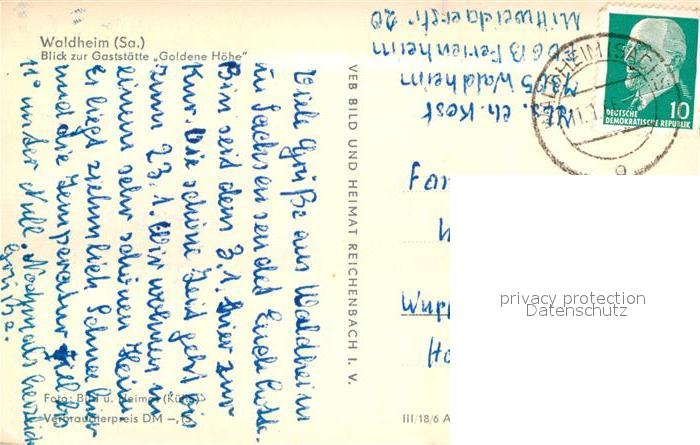 Waldheim (Sa.)
Blick zur Gaststätte „Goldene Höhe"
Viele Grüße aus Waldheim
in Sachsen sendet Euch Lotte.
Bin seit dem 3.1. hier zur
Kur. Die schöne Zeit geht bis
zum 23.1. Wir wohnen in
einem sehr schönen Heim
Es liegt ziemlich Schnee hier
und die Temperatur
11° unter Null. Nochmals herzliche
Grüße.
Foto: Bild u. Heimat (
Verbraucherpreis DM –,15
VEB BILD UND HEIMAT REICHENBACH I. V.
III/18/6 A
Abs. Ch. Kost
7305 Waldheim
FDGB Ferienheim
Mittweidaerstr 20
DEUTSCHE
DEMOKRATISCHE REPUBLIK
10
Fam
Wupp
privacy protection
Datenschutz